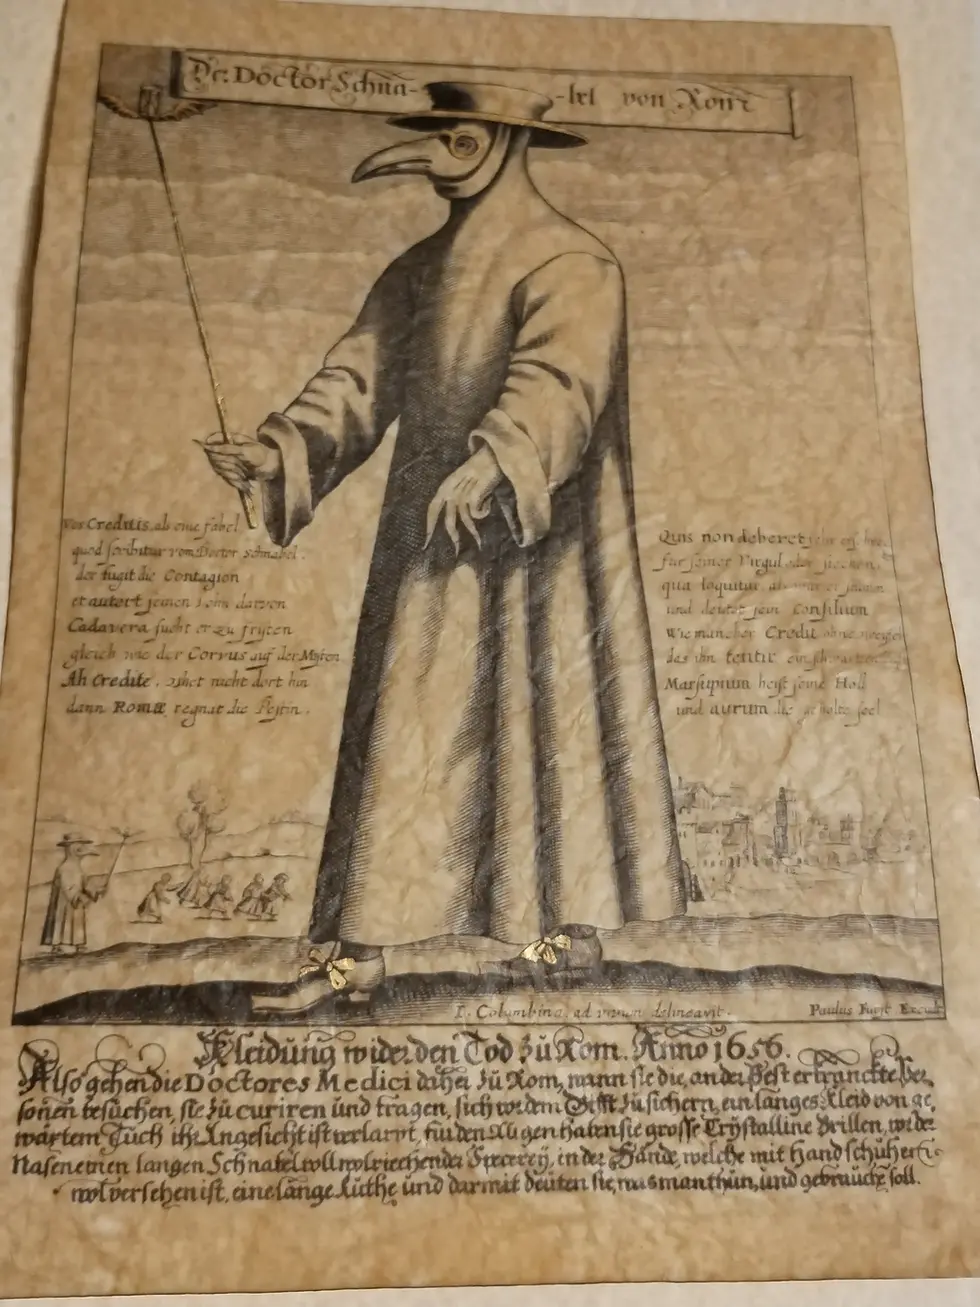 Der Doctor Schna-bel von Rom
Vos Creditis, als eine fabel
quod scribitur vom Doctor Schnabel.
der fugit die Contagion
et aufert seinen Lohn darvon
Cadavera sucht er zu fristen
gleich wie der Corvus auf der Misten
Ah Credite, sihet nicht dort hin
dann Romæ regnat die Pestin.
Quis non deberet sehr
für seiner Virgul oder
qua loquitur, als wär er stumm
und deutet sein Consilium
Wie mancher Credit ohne zweifel
das ihn tentir ein schwartzer
Marsupium heist seine Höll
und aurum die geholte seel
I. Columbina, ad vivum delineavit.
Paulus Fürst Excud
Kleidung wider den Tod zu Rom. Anno 1656.
Also gehen die Doctores Medici daher zu Rom, wann sie die, an der Pest erkranckte Per,
sonen besuchen, sie zu curiren und tragen, sich vor dem Gifft zu sichern, ein langes Kleid von ge,
wäxtem Tuch ihr Angesicht ist verlarvt, für den Augen haben sie grosse Crystalline Brillen, vor der
Nasen einen langen Schnabel voll wolriechender Specerey, in der Hände, welche mit Handschuher
wol versehen ist, eine lange Ruthe und darmit deuten sie, was man thun, und gebrauche soll.